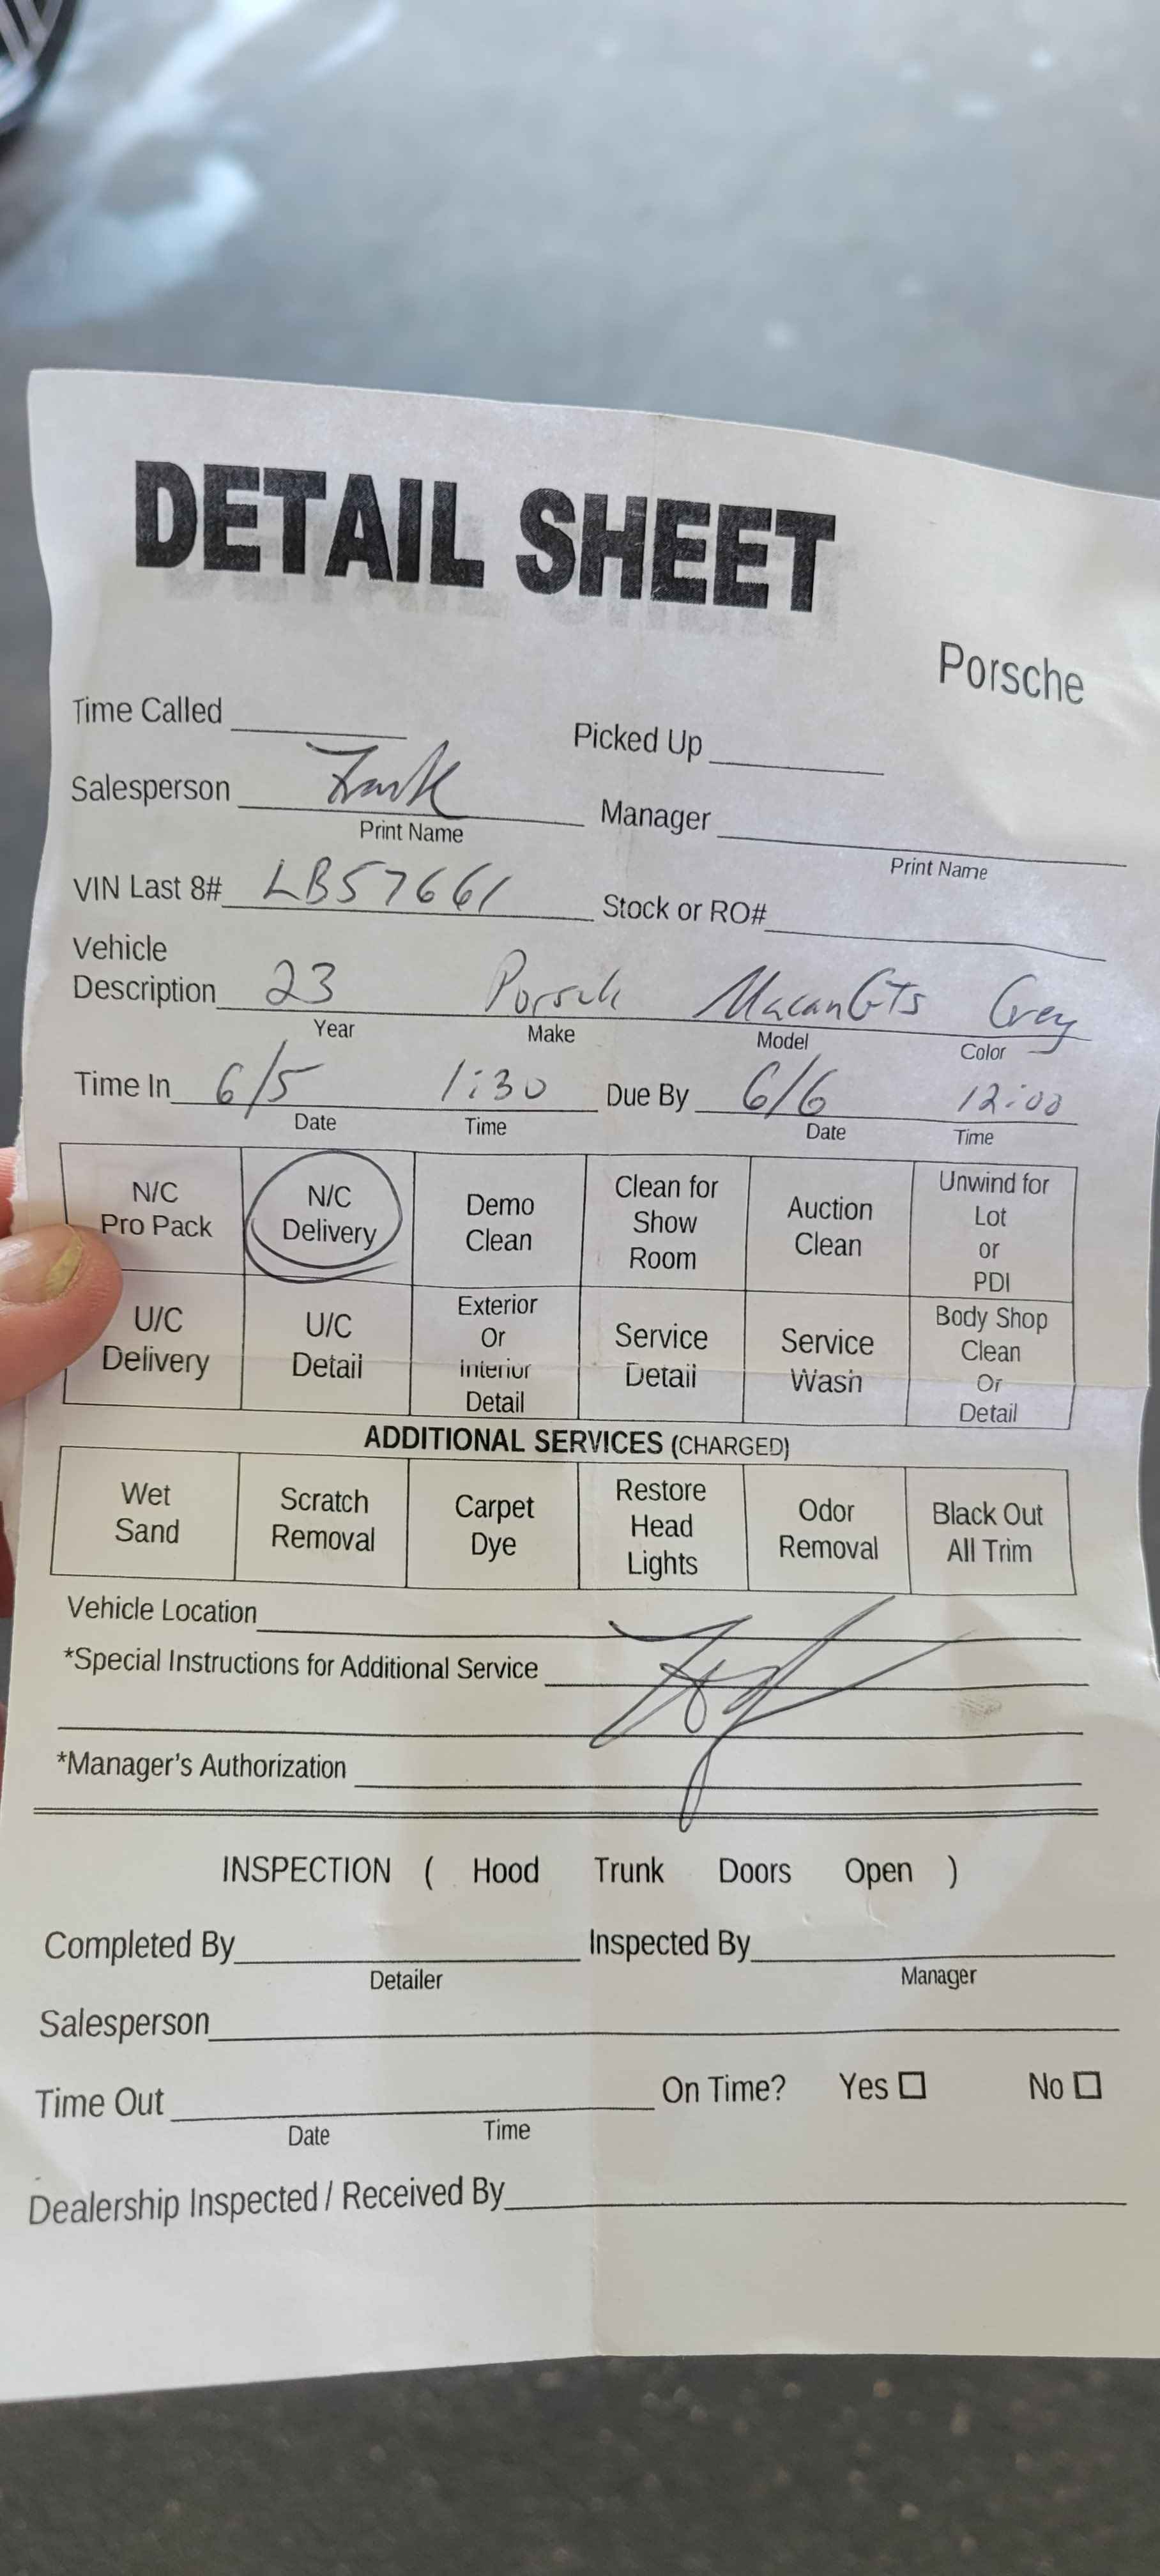 DETAIL SHEET
Porsche
Time Called Picked Up
Salesperson Frank Manager
Print Name Print Name
VIN Last 8# LB57661 Stock or RO#
Vehicle
Description 23 Porsche Macan GTS Grey
Year Make Model Color
Time In 6/5 1:30 Due By 6/6 12:00
Date Time Date Time
N/C Pro Pack N/C Delivery Demo Clean Clean for Show Room Auction Clean Unwind for Lot or PDI
U/C Delivery U/C Detail Exterior Or Interior Detail Service Detail Service Wash Body Shop Clean Or Detail
ADDITIONAL SERVICES (CHARGED)
Wet Sand Scratch Removal Carpet Dye Restore Head Lights Odor Removal Black Out All Trim
Vehicle Location
*Special Instructions for Additional Service
*Manager's Authorization
INSPECTION ( Hood Trunk Doors Open )
Completed By Inspected By
Detailer Manager
Salesperson
Time Out On Time? Yes No
Date Time
Dealership Inspected / Received By